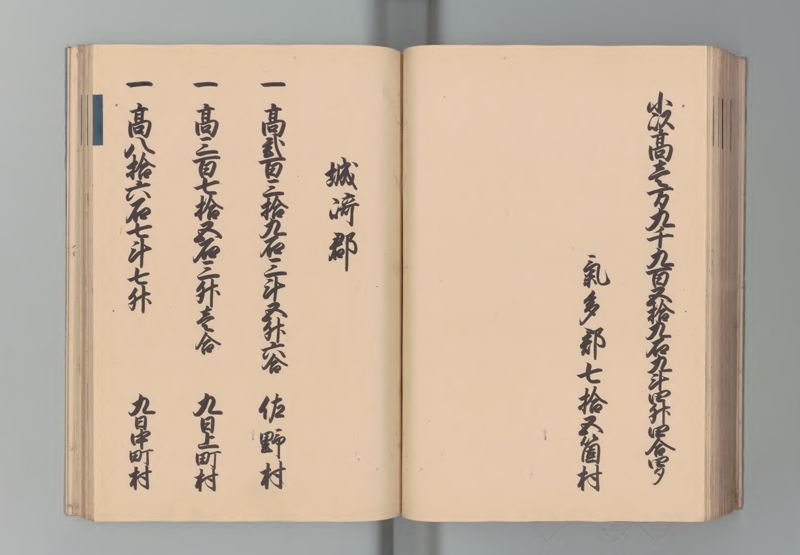 小以高壱万九千九百五拾九石九斗四升四合四夕
氣多郡七拾五箇村
城﨑郡
一高弐百三拾九石三斗五升六合 佐野村
一高三百七拾五石三升壱合 九日上町村
一高八拾六石七斗七升 九日中町村